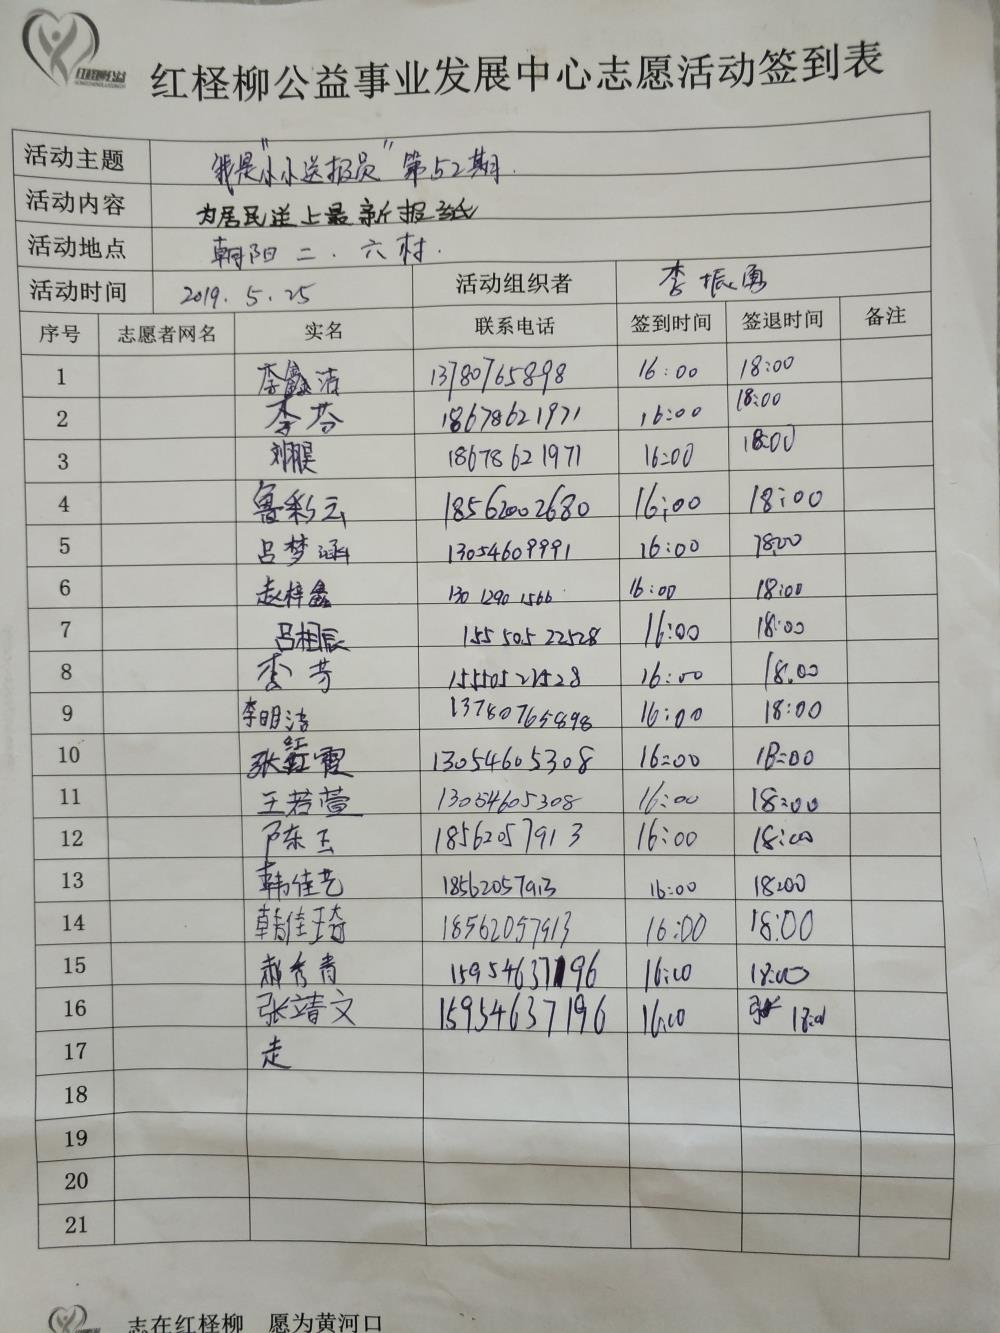 红柽柳公益
红柽柳公益事业发展中心志愿活动签到表
活动主题 我是“小小送报员”第52期.
活动内容 为居民送上最新报纸
活动地点 朝阳二.六村.
活动时间 2019.5.25 活动组织者 李振勇
序号 志愿者网名 实名 联系电话 签到时间 签退时间 备注
1 李鑫洁 13780765898 16:00 18:00
2 李芬 18678621971 16:00 18:00
3 18678621971 16:00 18:00
4 鲁彩云 18562002680 16:00 18:00
5 吕梦涵 13054609991 16:00 18:00
6 赵梓鑫 130 1290 1566 16:00 18:00
7 吕相辰 155 505 22528 16:00 18:00
8 李芳 16:00 18.00
9 李明洁 13780765898 16:00 18:00
10 张红霞 13054605308 16:00 18:00
11 王若萱 13054605308 16:00 18:00
12 陈玉 18562057913 16:00 18:00
13 韩佳艺 18562057913 16:00 18:00
14 韩佳琦 18562057913 16:00 18:00
15 郝秀青 15954637196 16:00 18:00
16 张靖文 15954637196 16:00 张 18:00
17 走
18
19
20
21
志在红柽柳 愿为黄河口